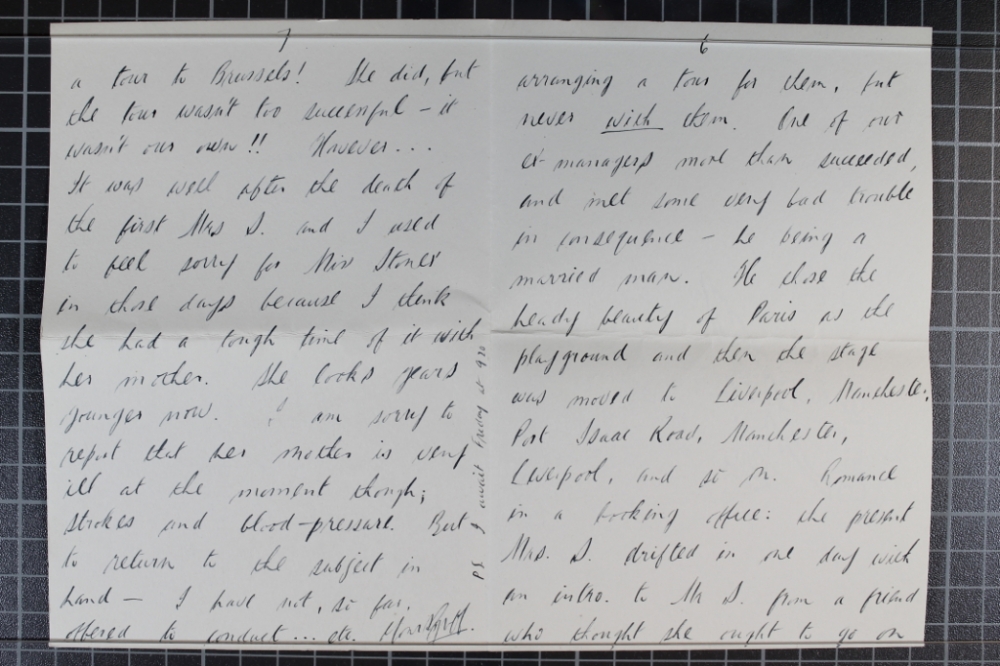 6
arranging a tour for them, but
never with them. One of our
ex-managers more than succeeded,
and met some very bad trouble
in consequence – he being a
married man. He chose the
heady beauty of Paris as the
playground and then the stage
was moved to Liverpool, Manchester,
Port Isaac Road, Manchester,
Liverpool, and so on. Romance
in a booking office: the present
Mrs. S. drifted in one day with
an intro. to Mr S. from a friend
who thought she ought to go on
7
a tour to Brussels! She did, but
the tour wasn't too successful – it
wasn't our own!! However...
It was well after the death of
the first Mrs S. and I used
to feel sorry for Miss Stoner
in those days because I think
she had a tough time of it with
her mother. She looks years
younger now. I am sorry to
report that her mother is very
ill at the moment though;
strokes and blood-pressure. But
to return to the subject in
hand – I have not, so far,
offered to conduct... etc.
PS I await Friday at 930